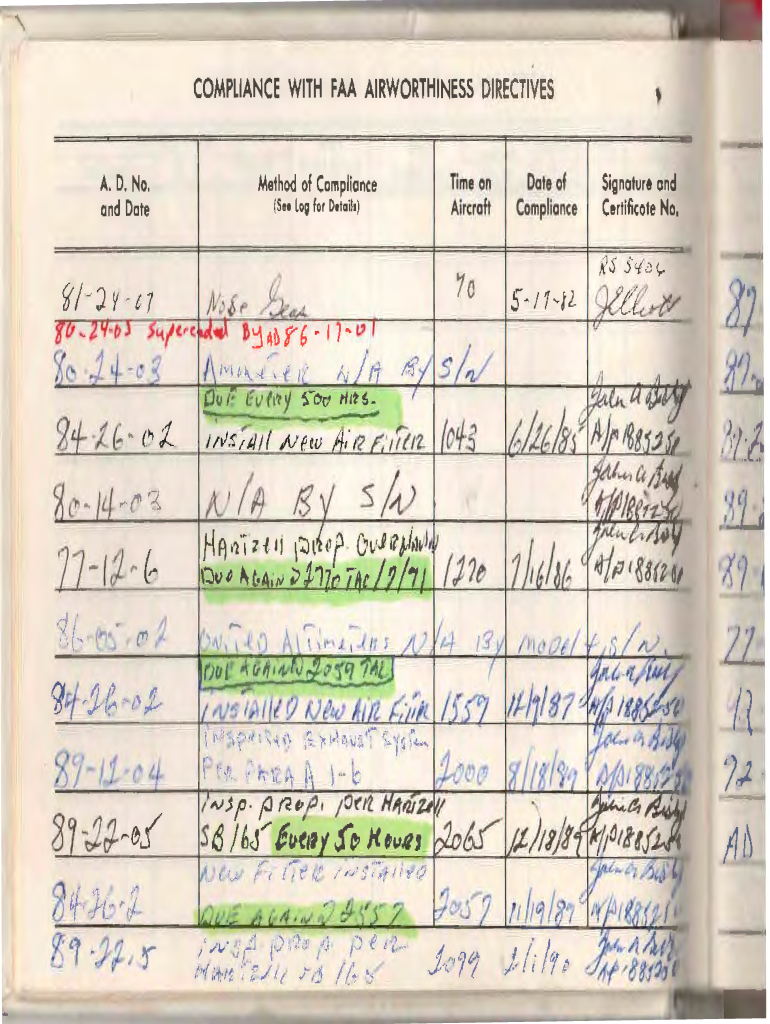 COMPLIANCE WITH FAA AIRWORTHINESS DIRECTIVES
A. D. No. and Date Method of Compliance (See Log for Details) Time on Aircraft Date of Compliance Signature and Certificate No.
RS 5406
81-24-07 Nose Gear 70 5-17-82 JElliott
80-24-03 Superceded By AD 86-17-01
80-24-03 Ammeter N/A By S/N
DUE EVERY 500 HRS.
84-26-02 INSTAll New AIR FILTER 1043 6/26/85 A/P 1885250
80-14-03 N/A By S/N
HARTZELL PROP. OVERHAUL
77-12-6 DUE AGAIN 2770 TAC/7/91 1270 7/16/86
86-05-02 UNITED ALTIMETERS N/A By model + S/N.
DUE AGAIN 2059 TAC
84-26-02 INSTALLED NEW AIR FILTER 1559 12/9/87
INSPECTED EXHAUST SYSTEM
89-12-04 PER PARA A 1-6 2000 8/18/89
INSP. PROP. PER HARTZELL
89-22-05 SB 165 EVERY 50 HOURS 2065 12/18/89
NEW FILTER INSTALLED
84-26-2 DUE AGAIN 2557 2057 11/19/89
89-22.5 INSP. PROP PER 2099 2/1/90
HARTZELL SB 165
87
89
89
77
92-
AD